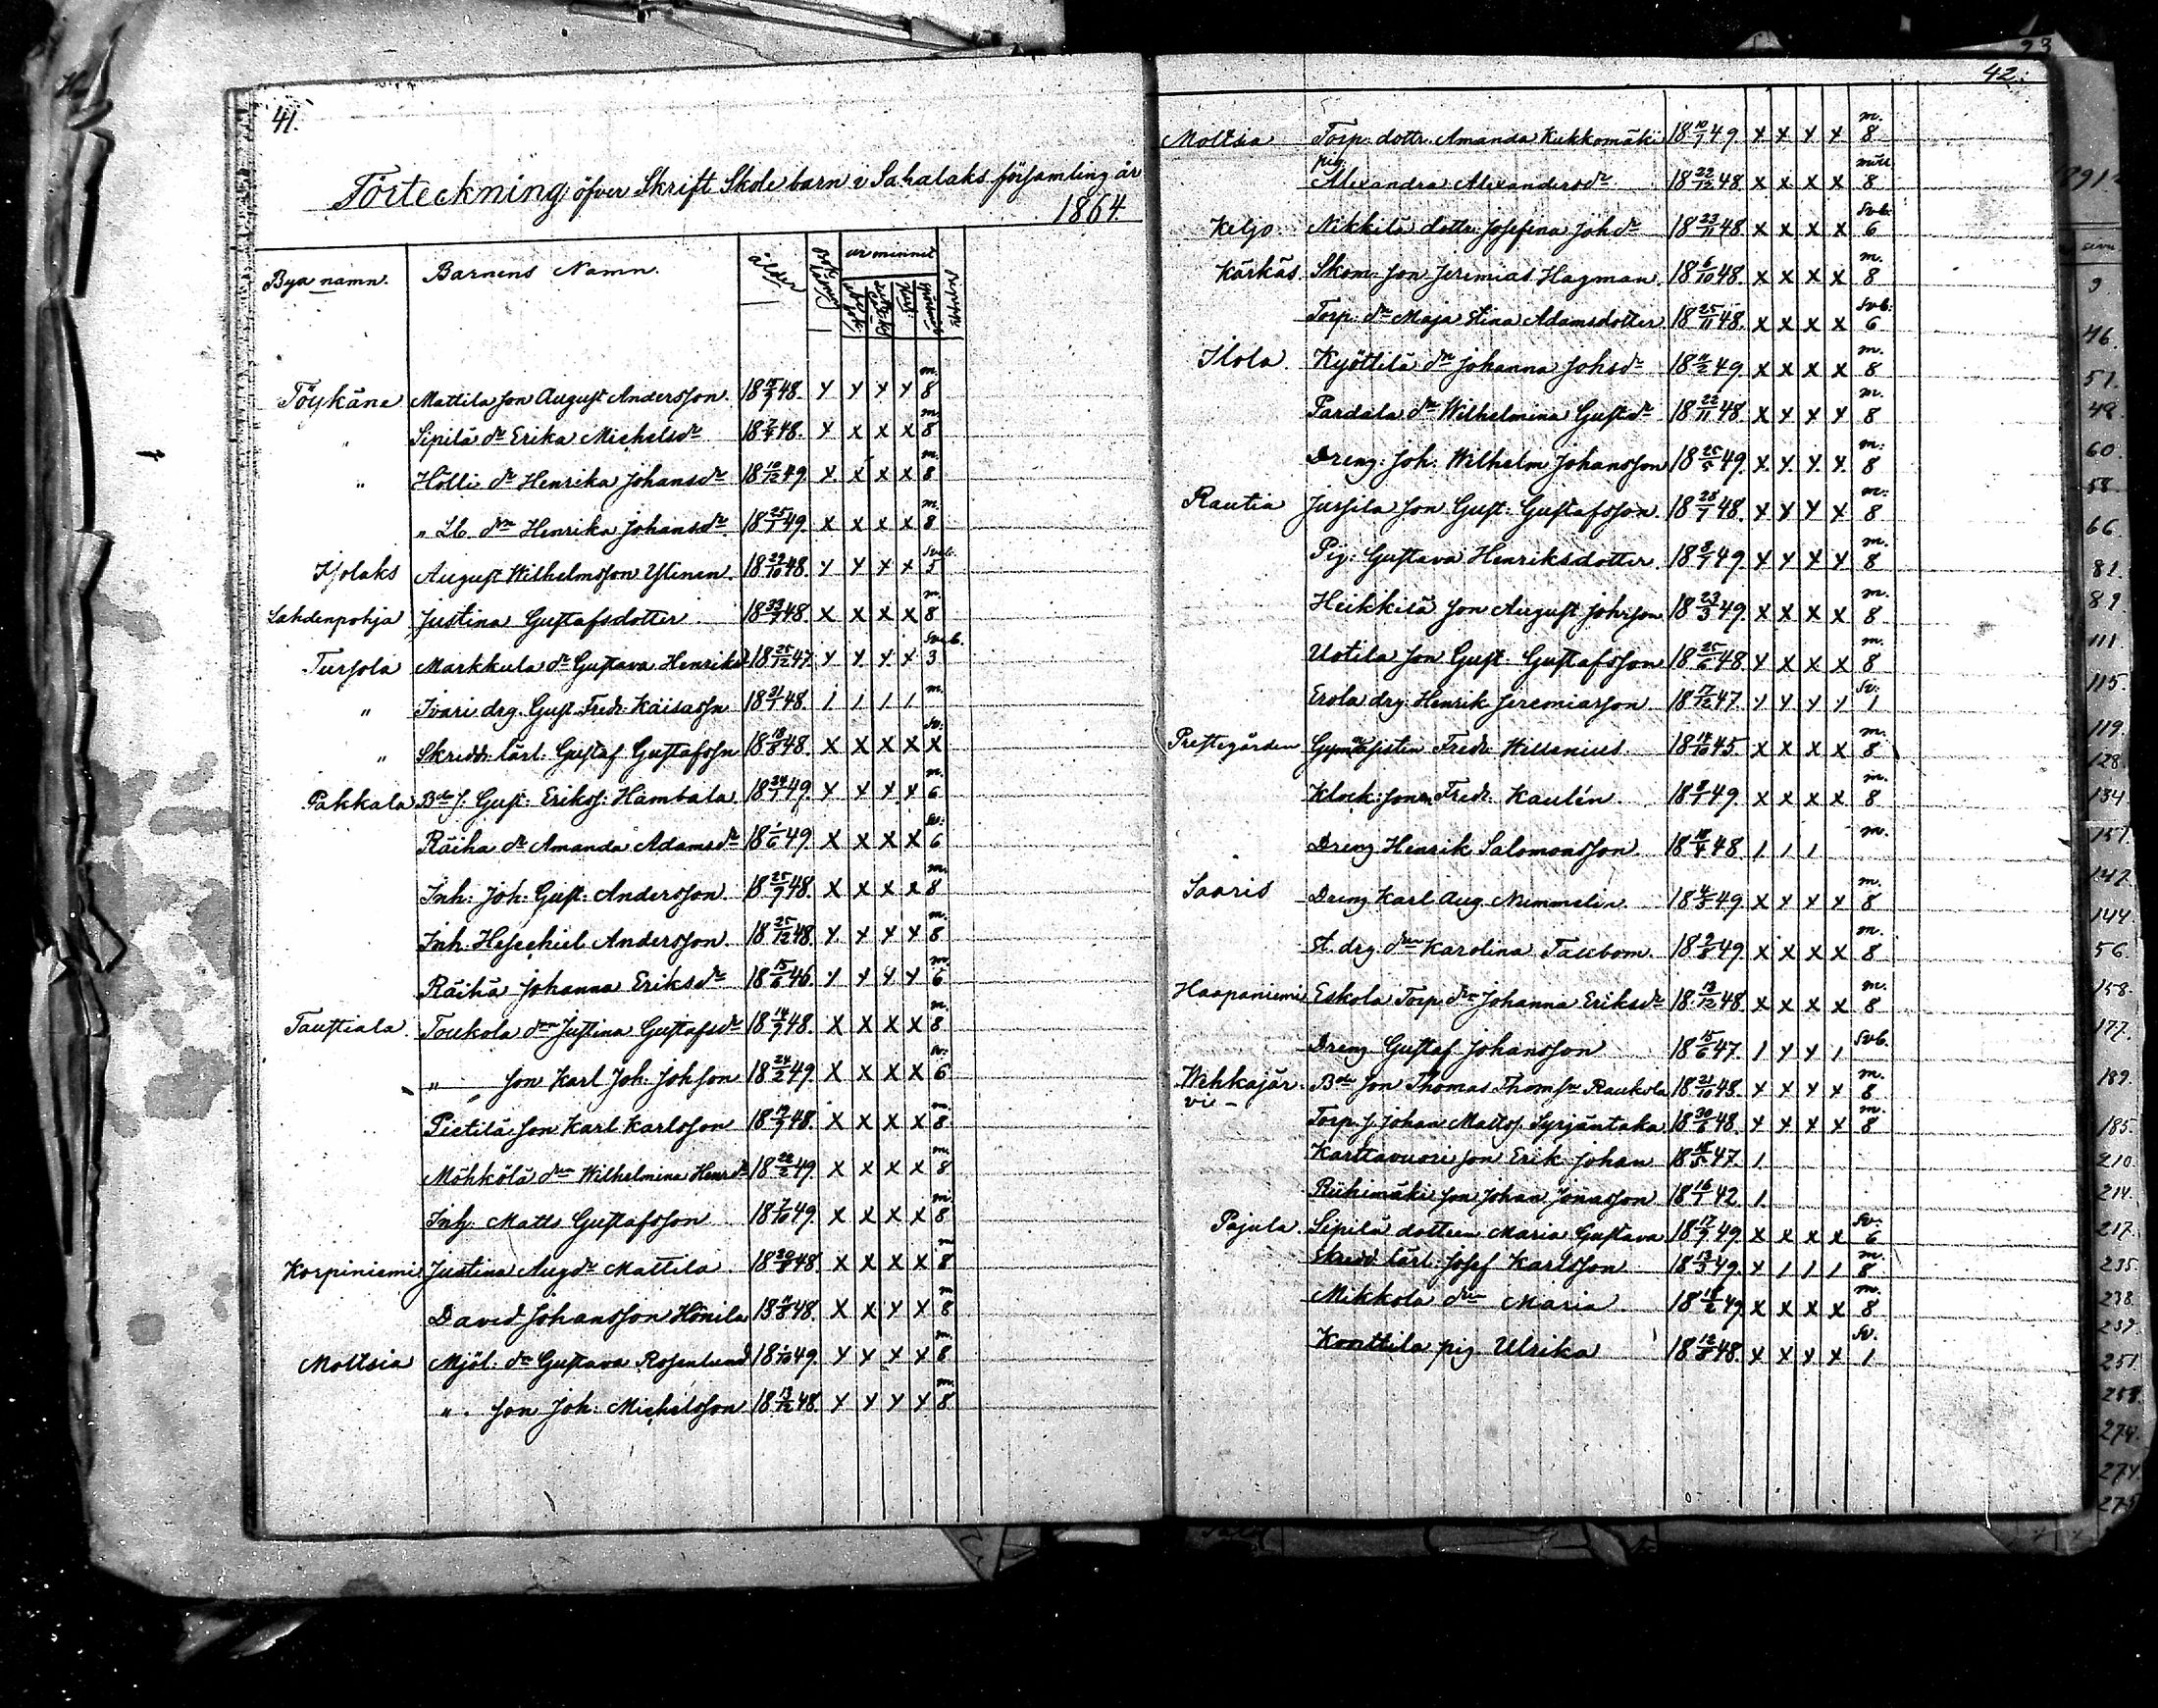 41.
Förteckning öfver Skrift Skole barn i Sahalaks församling år
1864
Bya namn. Barnens Namn. ålder ur minnet
Töykäne Mattila son August Andersson 48. x x x x m. 8
" Sipilä dr Erika Michelsdr 18 7/4 48. x x x x m. 8
" Hölli dr Henrika Johansdr 18 10/12 49. x x x x m. 8
" Lb. drn Henrika Johansdr 18 25/1 49. x x x x m. 8
Isolaks August Wilhelmsson Ylinen 18 29/10 48. x x x x 5
Lahdenpohja Justina Gustafsdotter 48. x x x x m. 8
Tursola Markkula dr Gustava Henriksd 18 25/12 47. x x x x 3
" Ivari drg. Gust Fredr. Käisassn 18 21/1 48. 1 1 1 1 m.
" Skrädd. lärl. Gustaf Gustafssn 18 18/8 48. x x x x sv. x
Pakkala Bde s. Gust. Eriks. Hambala 18 24/1 49. x x x x m. 6
Räiha dr Amanda Adamsdr 18 1/6 49. x x x x sv. 6
Inh. Joh. Gust. Andersson 18 25/7 48. x x x x m. 8
Inh. Hesechiel Andersson 18 25/12 48. x x x x m. 8
Räihä Johanna Eriksdr 18 15/6 46. x x x x m. 6
Taustiala. Toukola drn Justina Gustafsdr 18 14/9 48. x x x x m. 8
" son Karl Joh. Johsson 18 24/2 49. x x x x sv. 6
Pietilä son Karl Karlsson 48. x x x x m. 8
Möhkölä drn Wilhelmina Henrdr 18 22/2 49. x x x x m. 8
Inh. Matts Gustafsson 18 7/10 49. x x x x m. 8
Korpiniemi Justina Augdr Mattila 18 20/8 48. x x x x m 8
David Johansson Hönila 18 11/8 48. x x x x m 8
Moltsia Mjöl. dr Gustava Rosenlund 18 1/10 49. x x x x m. 8
" son Joh. Michelsson 18 13/12 48. x x x x m. 8
42.
Moltsia Torp. dottr. Amanda Kukkomäki 18 10/9 49. x x x x m. 8
pig. Alexandra Alexandersdr 18 22/12 48 x x x x 8
Keljo Nikkilä dottr. Josefina Johdr 18 23/11 48. x x x x svb. 6
Kärkäs. Skom. son Jeremias Hagman. 18 6/10 48. x x x x m. 8
Torp. drn Maja Stina Adamsdotter 18 25/11 48. x x x x svb. 6
Ilola Kyöttilä drn Johanna Johsdr 18 11/2 49 x x x x m. 8
Pardala drn Wilhelmina Gustdr 18 22/11 48. x x x x m. 8
Dreng. Joh. Wilhelm Johansson 18 25/5 49. x x x x m. 8
Rautia Jussila son Gust. Gustafsson 18 28/7 48. x x x x m. 8
Pig. Gustava Henriksdotter. 49. x x x x m. 8
Heikkilä son August Johsson 18 23/3 49. x x x x m. 8
Uotila son Gust. Gustafsson 18 25/6 48. x x x x m. 8
Erola drg. Henrik Jeremiasson 18 17/12 47. x x x x sv. 1
Prestegården Gymnasisten Fredr. Willenius. 18 14/10 45. x x x x m. 8
Klock. sonen Fredr. Kaulén. 18 8/1 49. x x x x m. 8
Dreng Henrik Salomonsson 18 18/4 48. 1 1 1 m.
Saaris Dreng Karl Aug. Nimmelin 49. x x x x m. 8
st. drg. drn Karolina Tallbom. 18 9/8 49. x x x x m. 8
Haapaniemi Eskola Torp. drn Johanna Eriksdr 18 13/12 48. x x x x m. 8
Dreng Gustaf Johansson 18 15/6 47. 1 x x 1 svb.
Wehkajär-
vi – Bde son Thomas Thomsn Raukola 18 21/10 48. x x x x m. 8
Torp. s. Johan Matts. Syrjäntaka 18 30/6 48. x x x x m. 8
Karttavuori son Erik Johan 47. 1
Riihimäki son Johan Jonasson 18 16/1 42. 1
Pajula. Sipilä dottern Maria Gustava 18 17/9 49. x x x x sv. 6
Skrädd lärl. Josef Karlsson 18 13/3 49. x 1 1 1 m. 8
Mikkola drn Maria 18 18/2 49. x x x x m. 8
Konttila pig. Ulrika 18 12/8 48. x x x x sv. 1
23
46.
51.
48.
60.
58.
66.
81.
89.
111.
115.
119.
128.
134
151.
142.
144.
56.
158.
177.
189.
185.
210
214.
217.
235.
238.
237.
251
258.
274.
274.